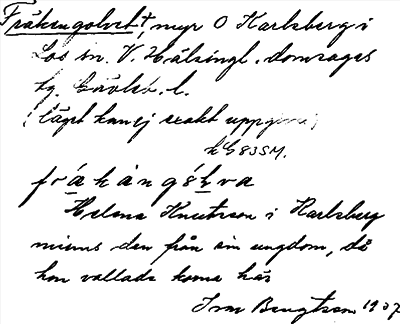 Fräkengolvet†, myr O Karlsberg i
Los sn. V. Hälsingl. domsagas
tg. Gävleb. l.
(Läget kan ej exakt uppgivas)
kG 83SM.
fräkàngóḷva
Helena Knutsson i Karlsberg
minns den från sin ungdom, då
hon vallade korna här
Ivar Bengtsson 1937